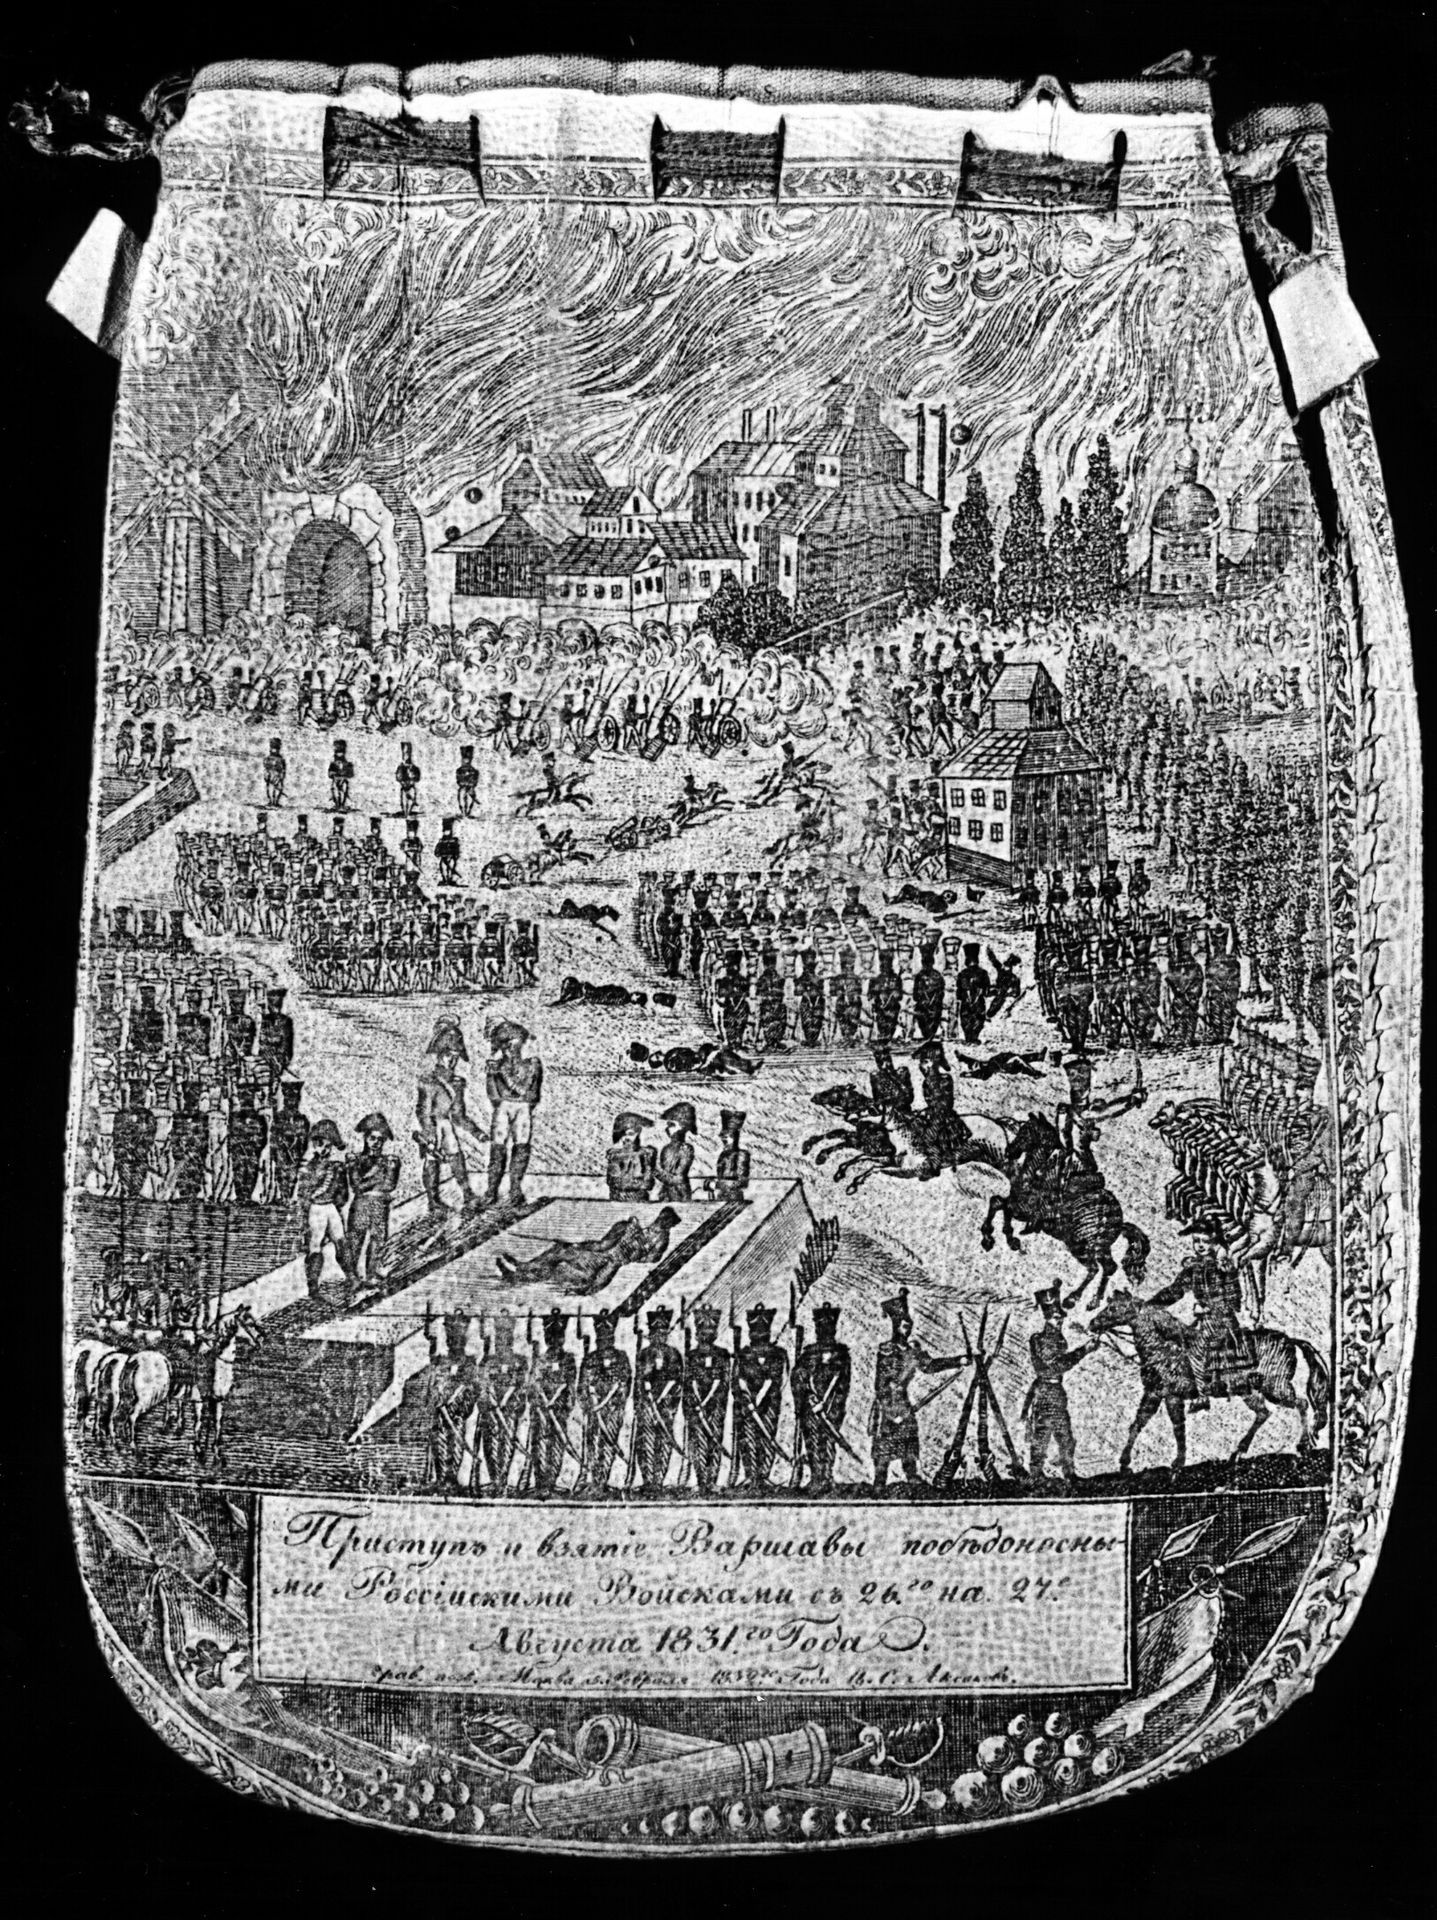 Приступъ и взятіе Варшавы побѣдоносны-
ми Россійскими Войсками съ 26.го на 27.е
Августа 1831.го Года.
Грав. Москва Февраля Года В. С.